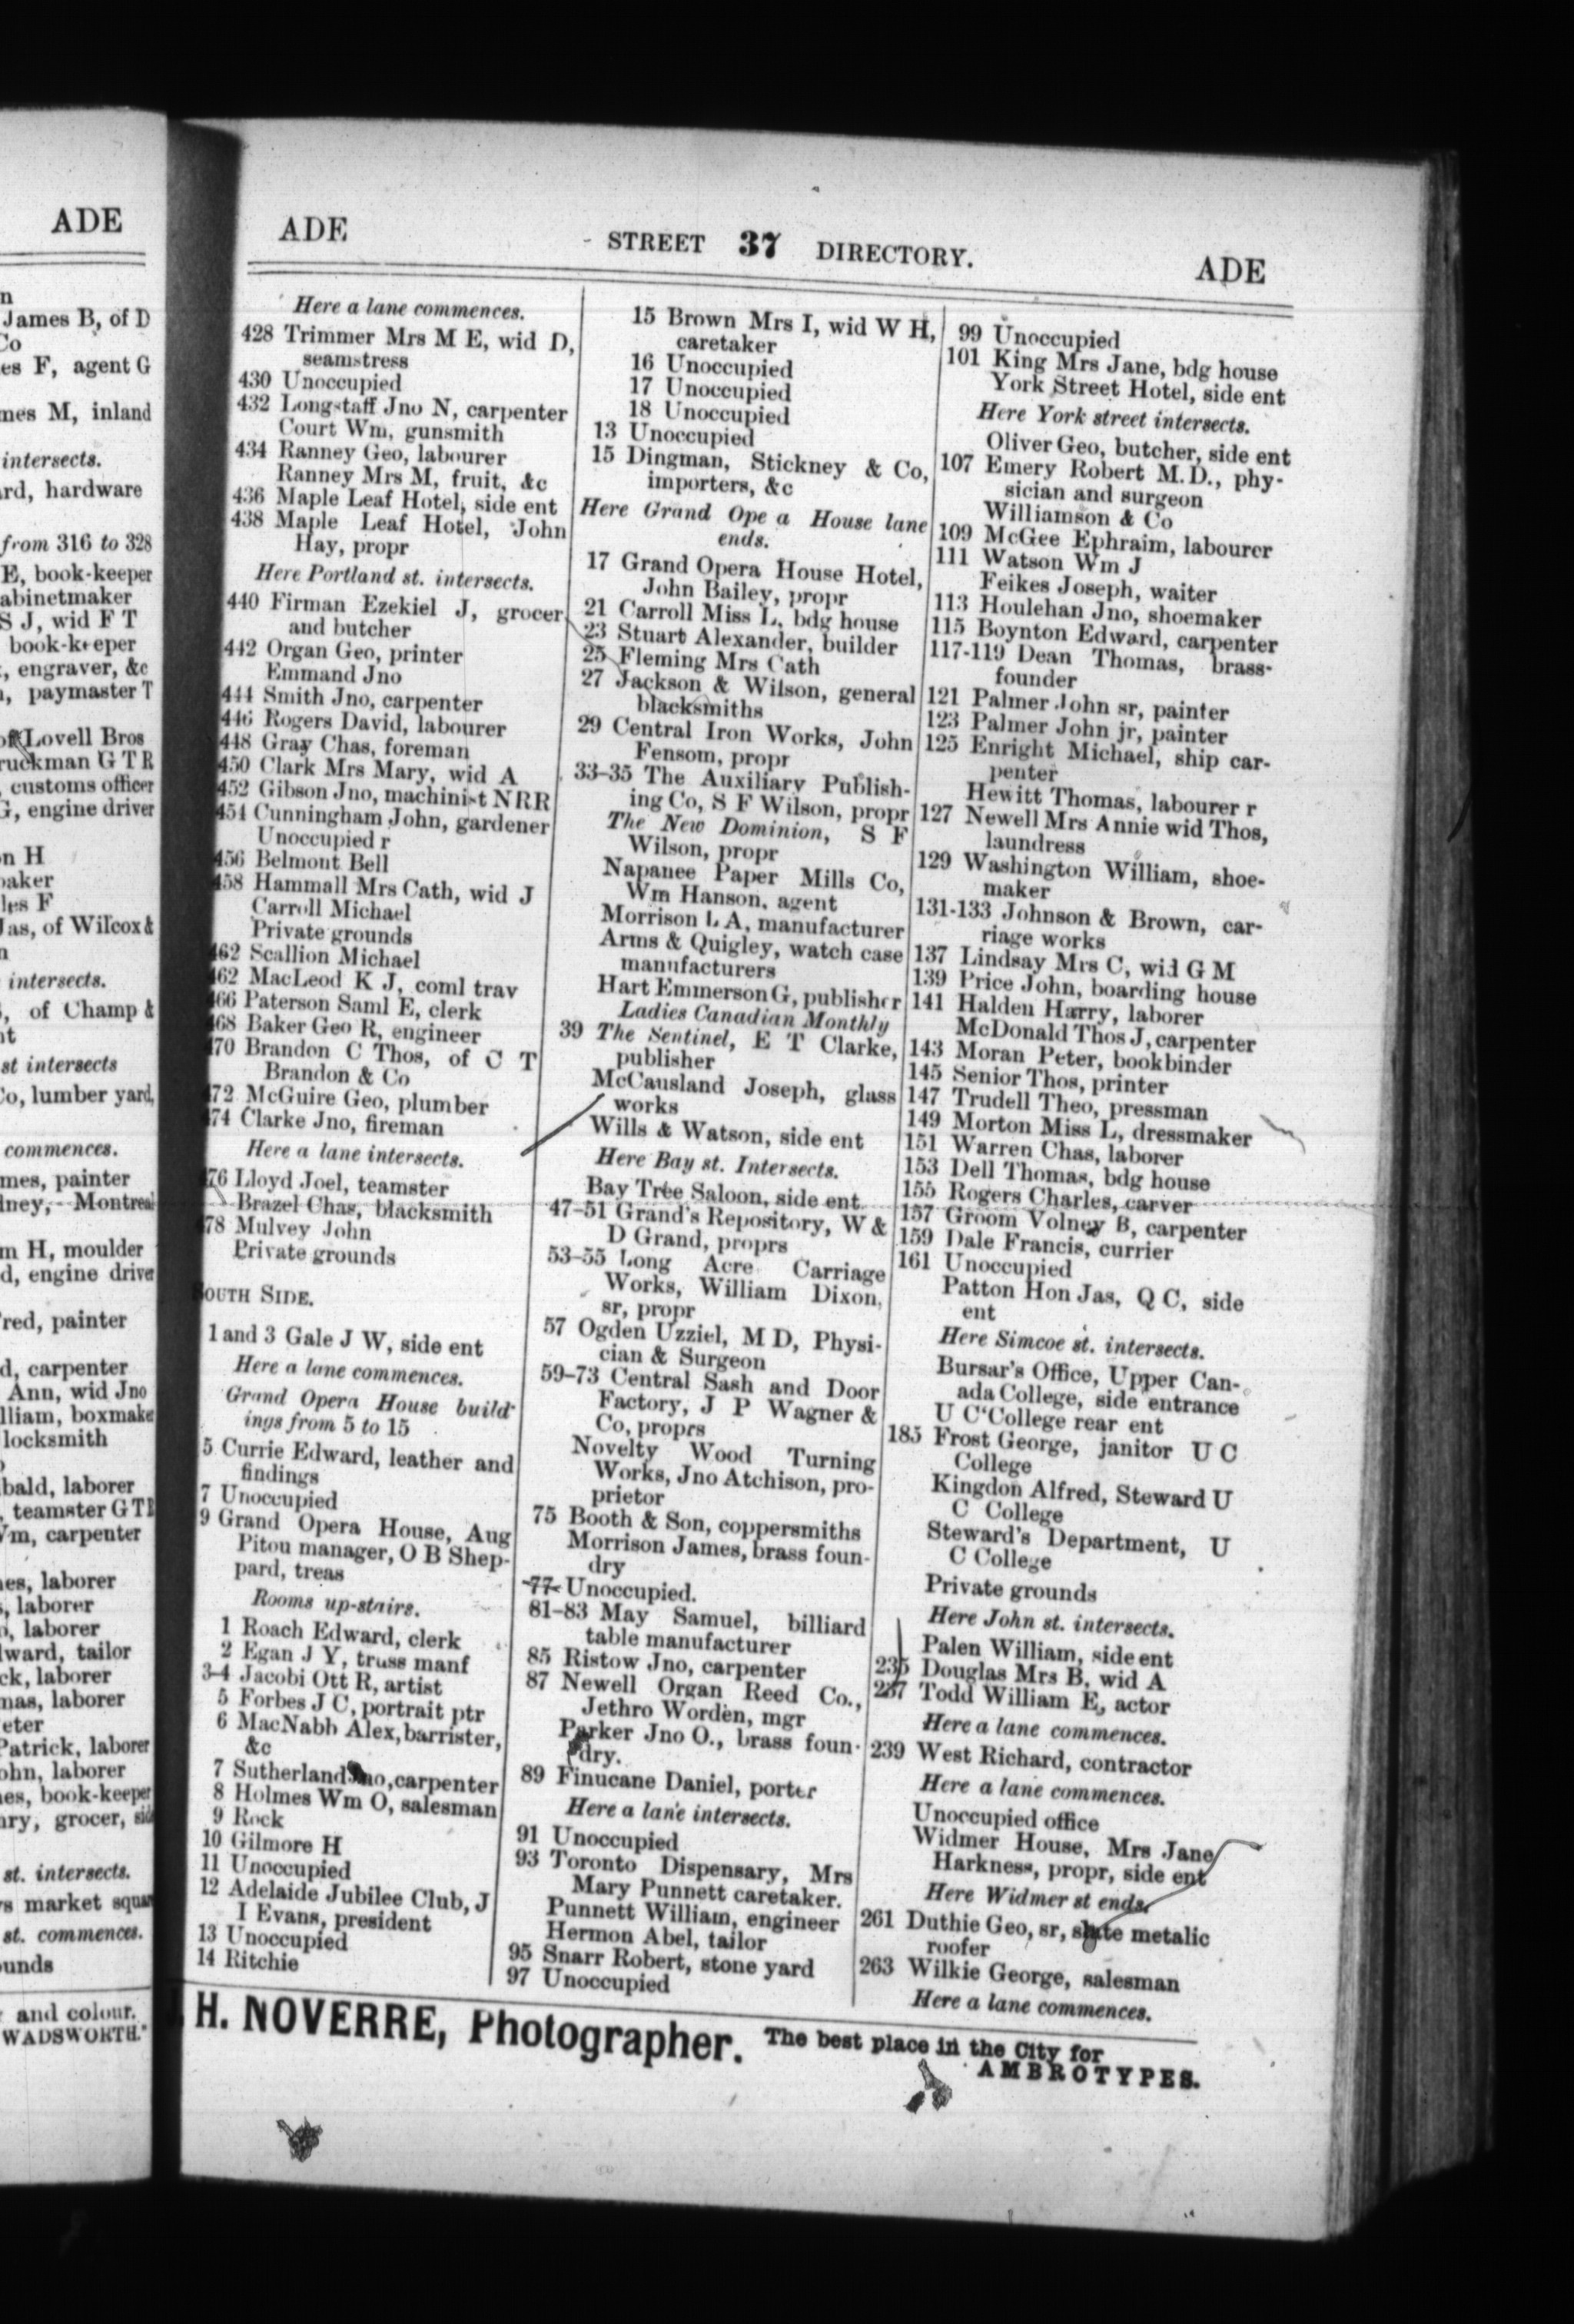 ADE
n
James B, of D
Co
es F, agent G
mes M, inland
intersects.
ard, hardware
from 316 to 328
E, book-keeper
abinetmaker
S J, wid F T
book-keeper
, engraver, &c
, paymaster T
of Lovell Bros
ruckman G T R
, customs officer
G, engine driver
n H
baker
les F
Jas, of Wilcox &
n
intersects.
, of Champ &
nt
st intersects
Co, lumber yard,
commences.
mes, painter
dney, Montreal
m H, moulder
d, engine driver
red, painter
d, carpenter
Ann, wid Jno
lliam, boxmaker
locksmith
bald, laborer
teamster G T R
Wm, carpenter
es, laborer
, laborer
, laborer
ward, tailor
ck, laborer
mas, laborer
eter
Patrick, laborer
ohn, laborer
es, book-keeper
nry, grocer, side
st. intersects.
s market square
st. commences.
ounds
and colour.
WADSWORTH."
ADE
STREET 37 DIRECTORY.
ADE
Here a lane commences.
428 Trimmer Mrs M E, wid D,
seamstress
430 Unoccupied
432 Longstaff Jno N, carpenter
Court Wm, gunsmith
434 Ranney Geo, labourer
Ranney Mrs M, fruit, &c
436 Maple Leaf Hotel, side ent
438 Maple Leaf Hotel, John
Hay, propr
Here Portland st. intersects.
440 Firman Ezekiel J, grocer
and butcher
442 Organ Geo, printer
Emmand Jno
444 Smith Jno, carpenter
446 Rogers David, labourer
448 Gray Chas, foreman
450 Clark Mrs Mary, wid A
452 Gibson Jno, machinist N R R
454 Cunningham John, gardener
Unoccupied r
456 Belmont Bell
458 Hammall Mrs Cath, wid J
Carroll Michael
Private grounds
462 Scallion Michael
462 MacLeod K J, coml trav
466 Paterson Saml E, clerk
468 Baker Geo R, engineer
470 Brandon C Thos, of C T
Brandon & Co
472 McGuire Geo, plumber
474 Clarke Jno, fireman
Here a lane intersects.
476 Lloyd Joel, teamster
Brazel Chas, blacksmith
478 Mulvey John
Private grounds
SOUTH SIDE.
1 and 3 Gale J W, side ent
Here a lane commences.
Grand Opera House build-
ings from 5 to 15
5 Currie Edward, leather and
findings
7 Unoccupied
9 Grand Opera House, Aug
Pitou manager, O B Shep-
pard, treas
Rooms up-stairs.
1 Roach Edward, clerk
2 Egan J Y, truss manf
3-4 Jacobi Ott R, artist
5 Forbes J C, portrait ptr
6 MacNabb Alex, barrister,
&c
7 Sutherland Jno, carpenter
8 Holmes Wm O, salesman
9 Rock
10 Gilmore H
11 Unoccupied
12 Adelaide Jubilee Club, J
I Evans, president
13 Unoccupied
14 Ritchie
15 Brown Mrs I, wid W H,
caretaker
16 Unoccupied
17 Unoccupied
18 Unoccupied
13 Unoccupied
15 Dingman, Stickney & Co,
importers, &c
Here Grand Ope a House lane
ends.
17 Grand Opera House Hotel,
John Bailey, propr
21 Carroll Miss L, bdg house
23 Stuart Alexander, builder
25 Fleming Mrs Cath
27 Jackson & Wilson, general
blacksmiths
29 Central Iron Works, John
Fensom, propr
33-35 The Auxiliary Publish-
ing Co, S F Wilson, propr
The New Dominion, S F
Wilson, propr
Napanee Paper Mills Co,
Wm Hanson, agent
Morrison L A, manufacturer
Arms & Quigley, watch case
manufacturers
Hart Emmerson G, publisher
Ladies Canadian Monthly
39 The Sentinel, E T Clarke,
publisher
McCausland Joseph, glass
works
Wills & Watson, side ent
Here Bay st. Intersects.
Bay Tree Saloon, side ent
47-51 Grand's Repository, W &
D Grand, proprs
53-55 Long Acre Carriage
Works, William Dixon,
sr, propr
57 Ogden Uzziel, M D, Physi-
cian & Surgeon
59-73 Central Sash and Door
Factory, J P Wagner &
Co, proprs
Novelty Wood Turning
Works, Jno Atchison, pro-
prietor
75 Booth & Son, coppersmiths
Morrison James, brass foun-
dry
77 Unoccupied.
81-83 May Samuel, billiard
table manufacturer
85 Ristow Jno, carpenter
87 Newell Organ Reed Co.,
Jethro Worden, mgr
Parker Jno O., brass foun-
dry.
89 Finucane Daniel, porter
Here a lane intersects.
91 Unoccupied
93 Toronto Dispensary, Mrs
Mary Punnett caretaker.
Punnett William, engineer
Hermon Abel, tailor
95 Snarr Robert, stone yard
97 Unoccupied
99 Unoccupied
101 King Mrs Jane, bdg house
York Street Hotel, side ent
Here York street intersects.
Oliver Geo, butcher, side ent
107 Emery Robert M.D., phy-
sician and surgeon
Williamson & Co
109 McGee Ephraim, labourer
111 Watson Wm J
Feikes Joseph, waiter
113 Houlehan Jno, shoemaker
115 Boynton Edward, carpenter
117-119 Dean Thomas, brass-
founder
121 Palmer John sr, painter
123 Palmer John jr, painter
125 Enright Michael, ship car-
penter
Hewitt Thomas, labourer r
127 Newell Mrs Annie wid Thos,
laundress
129 Washington William, shoe-
maker
131-133 Johnson & Brown, car-
riage works
137 Lindsay Mrs C, wid G M
139 Price John, boarding house
141 Halden Harry, laborer
McDonald Thos J, carpenter
143 Moran Peter, bookbinder
145 Senior Thos, printer
147 Trudell Theo, pressman
149 Morton Miss L, dressmaker
151 Warren Chas, laborer
153 Dell Thomas, bdg house
155 Rogers Charles, carver
157 Groom Volney B, carpenter
159 Dale Francis, currier
161 Unoccupied
Patton Hon Jas, Q C, side
ent
Here Simcoe st. intersects.
Bursar's Office, Upper Can-
ada College, side entrance
U C College rear ent
185 Frost George, janitor U C
College
Kingdon Alfred, Steward U
C College
Steward's Department, U
C College
Private grounds
Here John st. intersects.
Palen William, side ent
235 Douglas Mrs B, wid A
237 Todd William E, actor
Here a lane commences.
239 West Richard, contractor
Here a lane commences.
Unoccupied office
Widmer House, Mrs Jane
Harkness, propr, side ent
Here Widmer st ends.
261 Duthie Geo, sr, slate metalic
roofer
263 Wilkie George, salesman
Here a lane commences.
H. NOVERRE, Photographer. The best place in the City for
AMBROTYPES.